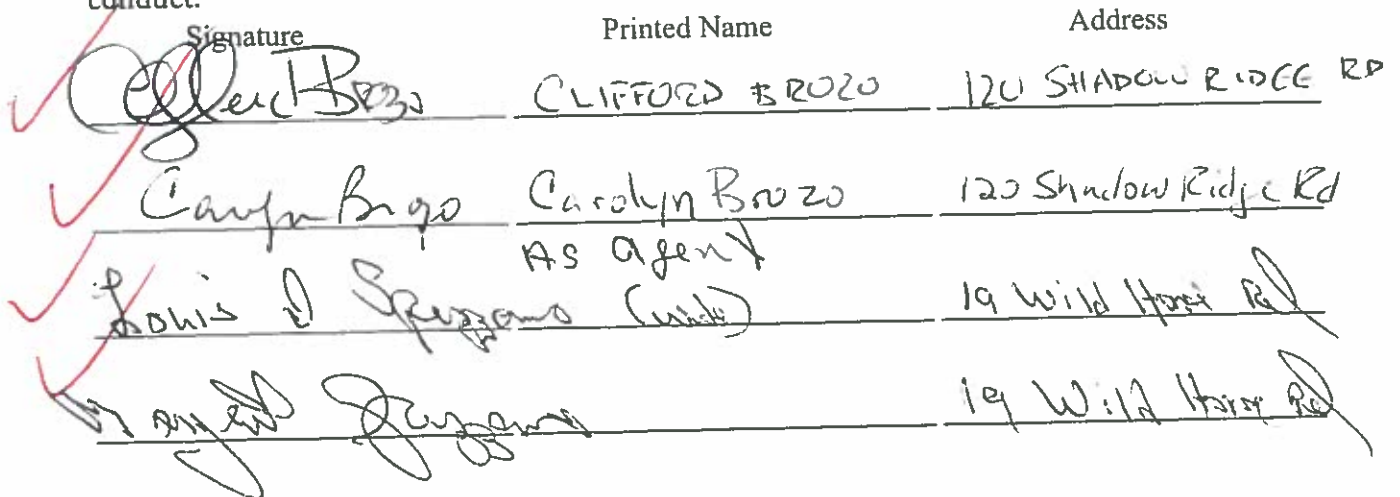 conduct.
Signature Printed Name Address
Clifford Brozo CLIFFORD BROZO 120 SHADOW RIDGE RD
Carolyn Brozo Carolyn Brozo 120 Shadow Ridge Rd
As agent
Louis D Spezzano 19 Wild Horse Rd
Spezzano 19 Wild Horse Rd